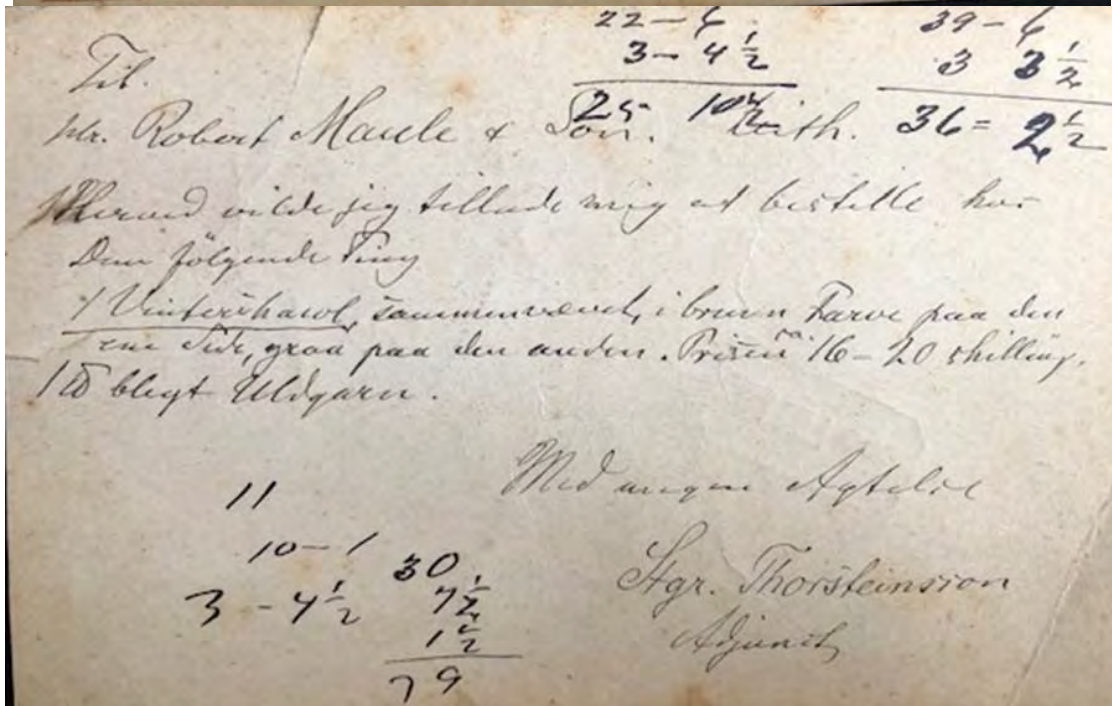 22 – 6 39 – 6
3 – 4 ½ 3 3 ½
Til.
25 10 ½ 36 = 2 ½
Mr. Robert Maule & Son. Leith.
Herved vilde jeg tillade mig at bestille hos
Dem følgende Ting
1 Vintershawl, sammenvævet, i brun Farve paa den
ene Side, graa paa den anden. Prisen ca. 16 – 20 shilling.
1 ℔ blegt Uldgarn.
Med megen Agtelse
11
10 – 1 30
Stgr. Thorsteinsson
3 – 4 ½ 7 ½
1 ½
Adjunct
79